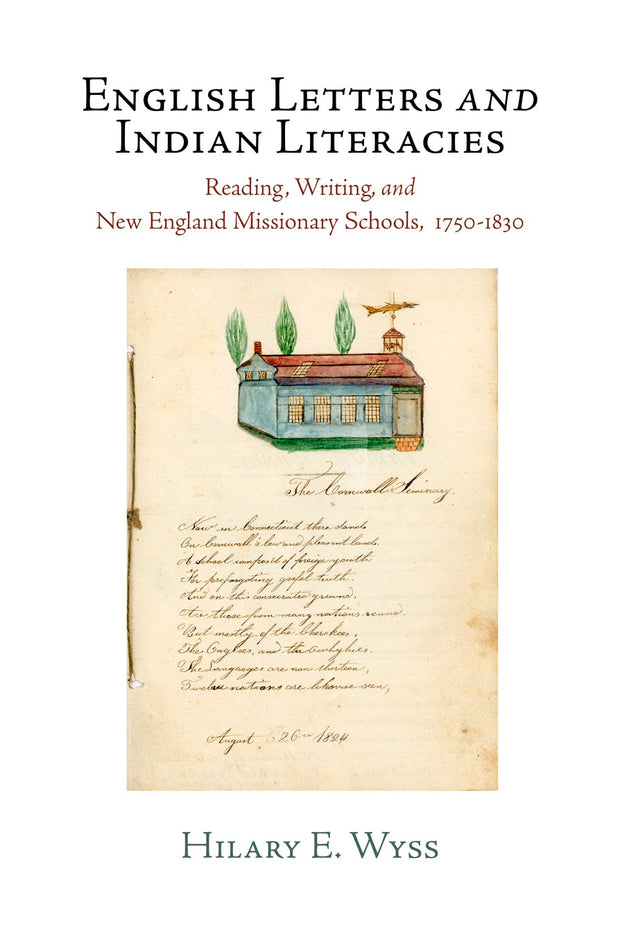 English Letters and
Indian Literacies
Reading, Writing, and
New England Missionary Schools, 1750-1830
The Cornwall Seminary.
Now in Connecticut there stands
On Cornwall's low and pleasant lands
A school compos'd of foreign youth
For propagating gospel truth.
And on this consecrated ground.
Are those from many nations round.
But mostly of the Cherokees,
The Angloes, and the Owhyhees.
The Languages are now thirteen,
Twelve nations are likewise seen,
August 26th 1824
Hilary E. Wyss